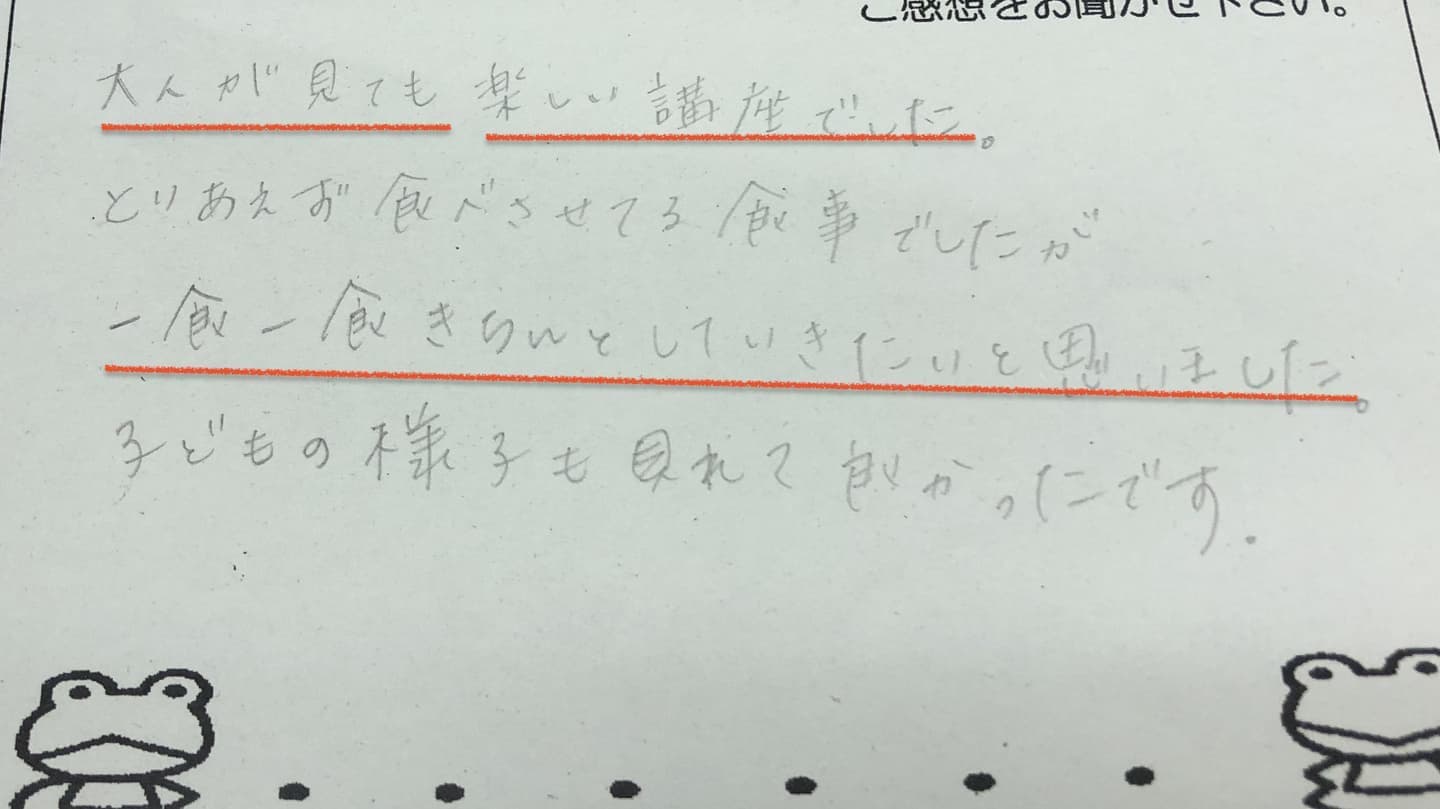 ご感想をお聞かせ下さい。
大人が見ても 楽しい講座でした。
とりあえず食べさせてる食事でしたが
一食一食きちんとしていきたいと思いました。
子どもの様子も見れて良かったです.